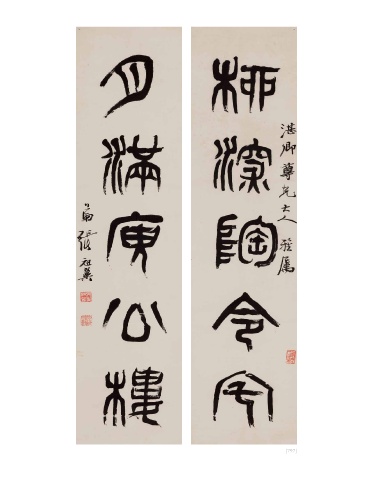 湛卿尊兄大人雅屬
柳深陶令宅
月滿庾公樓
張祖翼